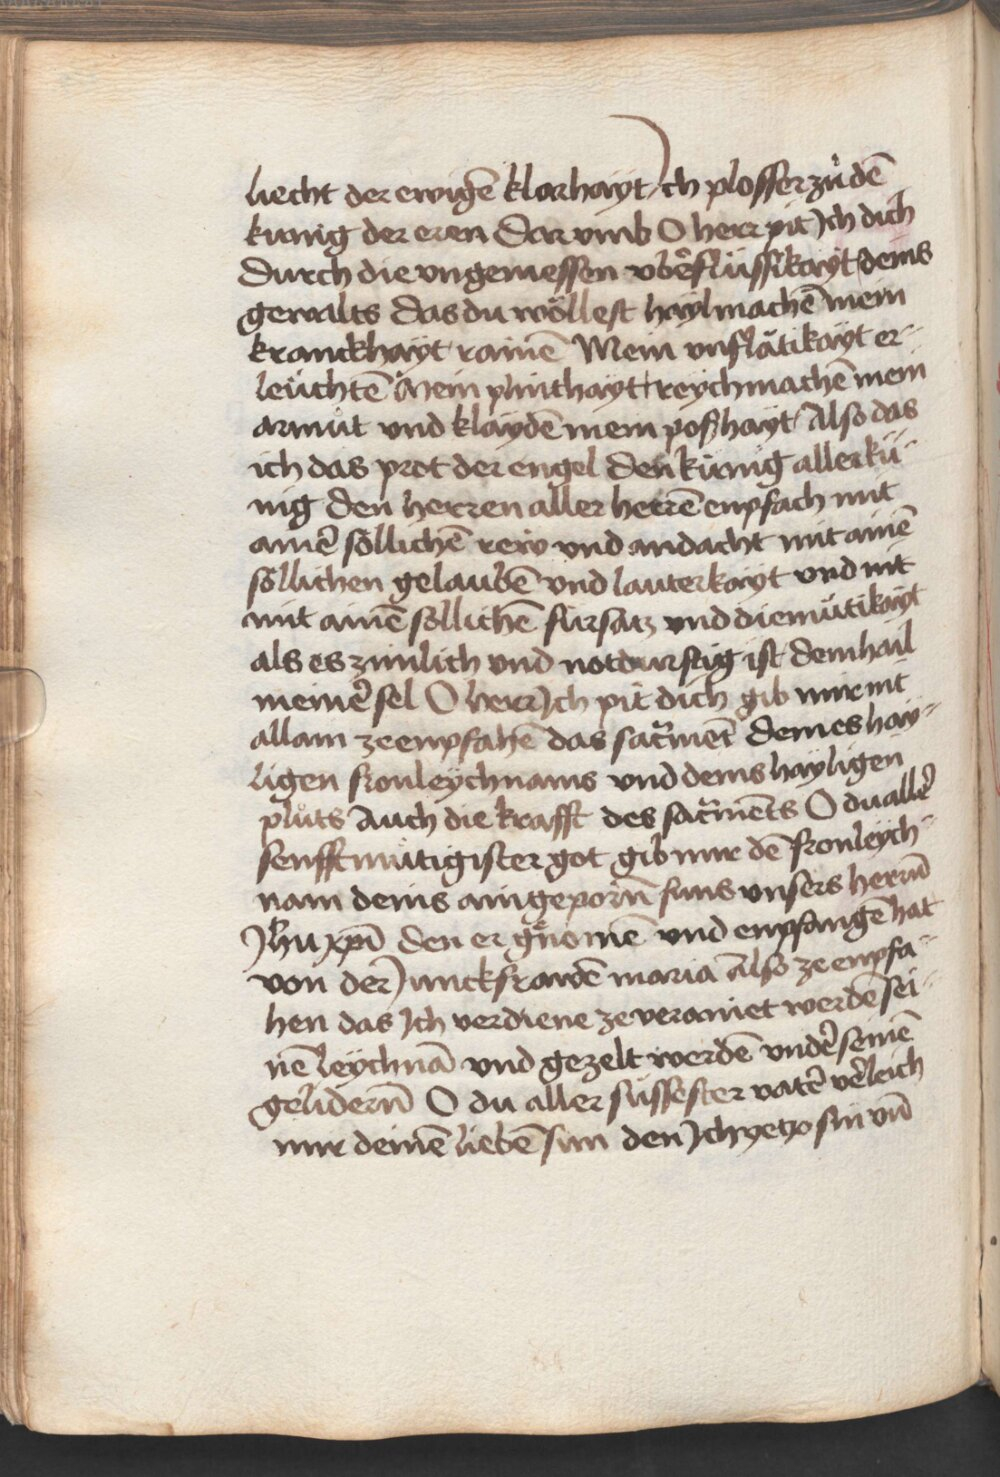 liecht der ewigē klarhayt Jch plosser zu̇ dē
kunig der eren Dar vmb O herr pit Jch dich
durch die vngemessen vbe͂flüssikayt deins
gewalts das du wöllest hayl machē mein
kranckhayt rainē Mein vnflätikayt er-
leüchtē Mein plinthayt reych machē mein
armu̇t vnd klaydē mein poßhayt Also das
ich das prot der engel den künig aller kü-
nig den herren aller herrē enpfach mit
aine͂ söllichē rew vnd andacht mit ainē
söllichen gelaubē vnd lauterkayt vnd mit
mit ainē söllichē fürsatz vnd diemütikayt
als es zimlich vnd notdurftig ist dem hail
meine͂ sel O herr Jch pit dich gib mir nit
allain ze enpfahē das sacrmēt deines hay-
ligen fronleychnams vnd deins hayligen
plůts Auch die krafft des sacrmēts O du alle͂
senfftmütigister got gib mir dē fronleych-
nam deins aingeporn̄ suns vnsers herrn̄
Jhu xpī den er gnomē vnd enpfangē hat
von der Junckfrawē maria Also ze enpfa-
hen das Jch verdiene ze veraniet werdē sei-
nē leychnā vnd gezelt werdē vnde͂ seinē
gelidern̄ O du aller süssester vate͂ ve͂leich
mir deinē liebē sun den Jch yetzo sin vn̄